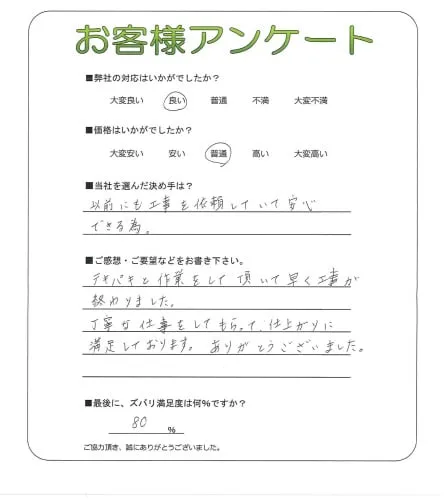 お客様アンケート
■弊社の対応はいかがでしたか？
大変良い 良い 普通 不満 大変不満
■価格はいかがでしたか？
大変安い 安い 普通 高い 大変高い
■当社を選んだ決め手は？
以前にも工事を依頼していて安心
できる為。
■ご感想・ご要望などをお書き下さい。
テキパキと作業をして頂いて早く工事が
終わりました。
丁寧な仕事をしてもらって、仕上がりに
満足しております。ありがとうございました。
■最後に、ズバリ満足度は何％ですか？
80 ％
ご協力頂き、誠にありがとうございました。